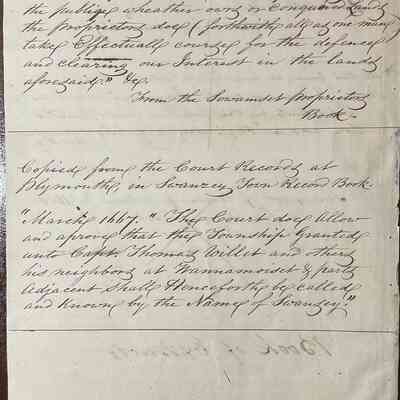 the publique wheather cord or Conquered Lands
the Proprietors doe (forthwith all as one man)
take Effectuall course for the defence
and clearing our Interest in the lands
aforesaid." &c
From the Sowamset Proprietors
Book.
Copied from the Court Records at
Plymouth, in Swanzey Town Record Book.
"March 1667. "The Court doe Allow
and aprove that the Township Granted
unto Capt. Thomas Willet and others
his neighbors at Wannamoiset & parts
Adjacent Shall Henceforth by called
and Known by the Name of Swansey."